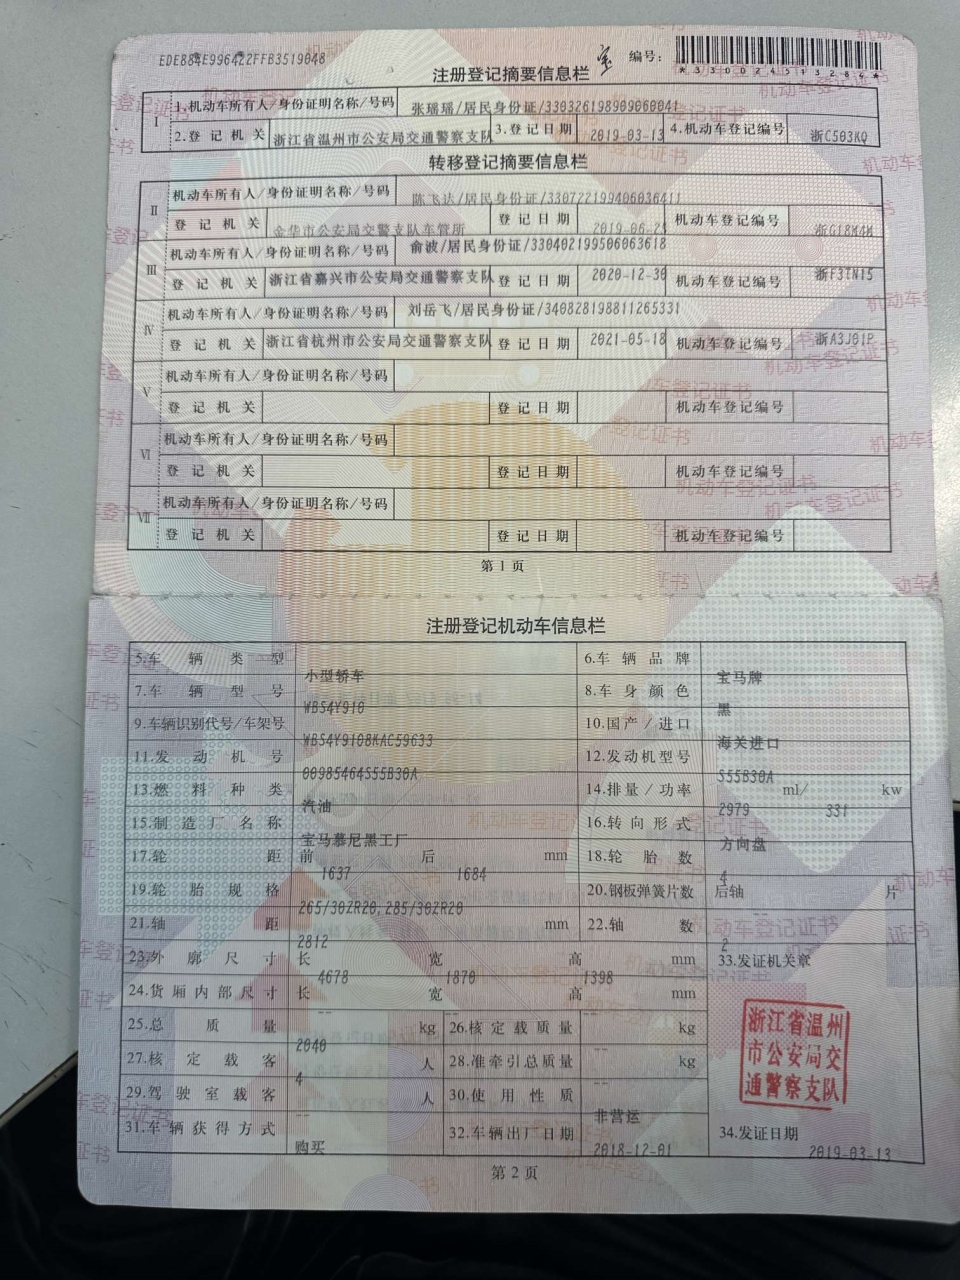 EDE884E996422FFB3519048
编号：
*330024513284*
注册登记摘要信息栏
I
1.机动车所有人/身份证明名称/号码 张瑶瑶/居民身份证/330326198909060041
2.登记机关 浙江省温州市公安局交通警察支队 3.登记日期 2019-03-13 4.机动车登记编号 浙C503KQ
转移登记摘要信息栏
II
机动车所有人/身份证明名称/号码 陈飞达/居民身份证/330722199406036411
登记机关 金华市公安局交警支队车管所 登记日期 2019-06-25 机动车登记编号 浙G18M4M
III
机动车所有人/身份证明名称/号码 俞波/居民身份证/330402199506063618
登记机关 浙江省嘉兴市公安局交通警察支队 登记日期 2020-12-30 机动车登记编号 浙F3TN15
IV
机动车所有人/身份证明名称/号码 刘岳飞/居民身份证/340828198811265331
登记机关 浙江省杭州市公安局交通警察支队 登记日期 2021-05-18 机动车登记编号 浙A3J01P
V
机动车所有人/身份证明名称/号码
登记机关 登记日期 机动车登记编号
VI
机动车所有人/身份证明名称/号码
登记机关 登记日期 机动车登记编号
VII
机动车所有人/身份证明名称/号码
登记机关 登记日期 机动车登记编号
第1页
注册登记机动车信息栏
5.车辆类型 小型轿车 6.车辆品牌 宝马牌
7.车辆型号 WBS4Y910 8.车身颜色 黑
9.车辆识别代号/车架号 WBS4Y9108KAC59633 10.国产/进口 海关进口
11.发动机号 00985464S55B30A 12.发动机型号 S55B30A
13.燃料种类 汽油 14.排量/功率 2979 ml/ 331 kw
15.制造厂名称 宝马慕尼黑工厂 16.转向形式 方向盘
17.轮距 前 1637 后 1684 mm 18.轮胎数 4
19.轮胎规格 265/30ZR20,285/30ZR20 20.钢板弹簧片数 后轴 -- 片
21.轴距 2812 mm 22.轴数 2
23.外廓尺寸 长 4678 宽 1870 高 1398 mm 33.发证机关章
24.货厢内部尺寸 长 -- 宽 -- 高 -- mm
浙江省温州
市公安局交
通警察支队
25.总质量 2040 kg 26.核定载质量 -- kg
27.核定载客 4 人 28.准牵引总质量 -- kg
29.驾驶室载客 -- 人 30.使用性质 非营运
31.车辆获得方式 购买 32.车辆出厂日期 2018-12-01 34.发证日期 2019-03-13
第2页